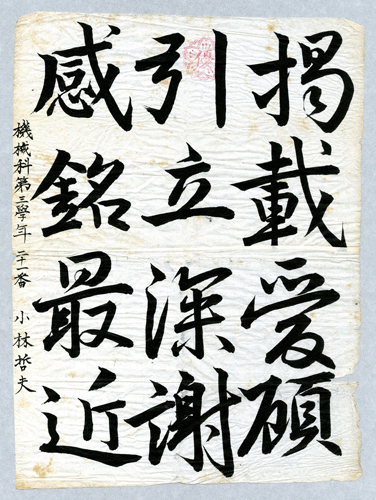 掲載愛顧
引立深謝
感銘最近
機械科第三學年二十一番 小林哲夫